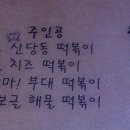 주인공
신당동 떡볶이
치즈 떡볶이
마! 부대 떡볶이
해물 떡볶이